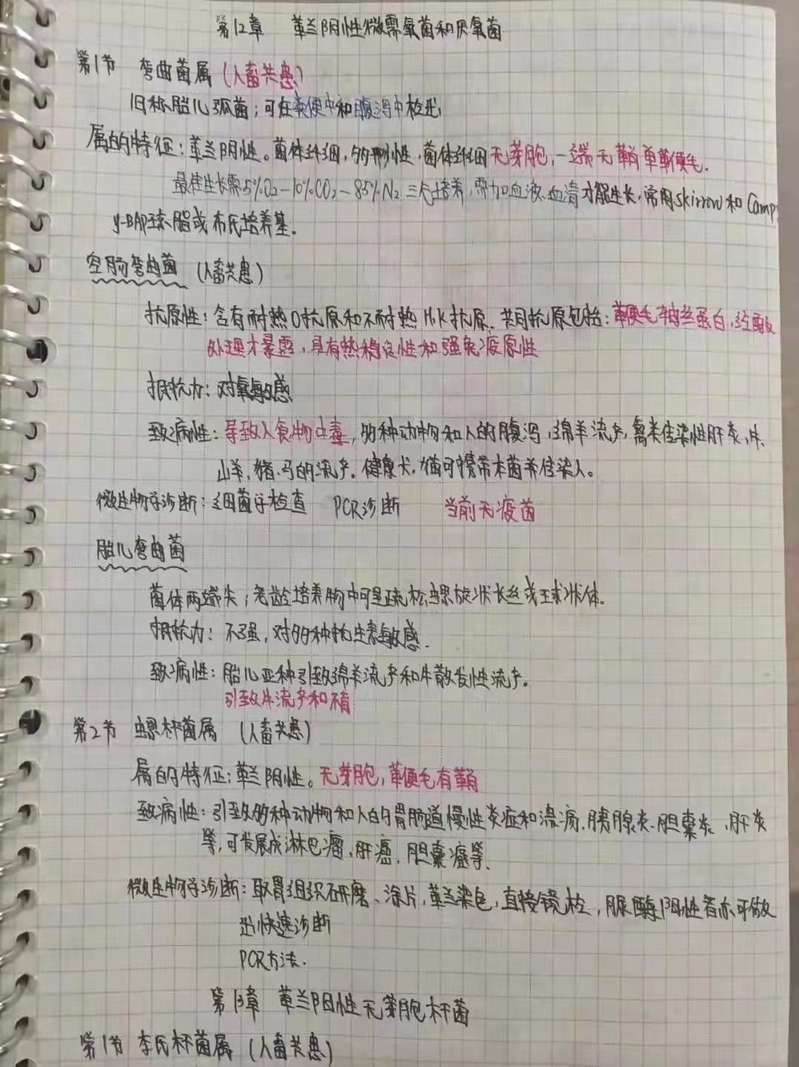 第12章 革兰阴性微需氧菌和厌氧菌
第1节 弯曲菌属 (人畜共患)
旧称胎儿弧菌;可在粪便中和腹泻中检出
属的特征:革兰阴性。菌体纤细,多形性,菌体纤细无芽胞,一端无鞘单鞭毛.
最佳生长需5%O₂-10%CO₂-85%N₂ 三气培养,需加血液、血清才能生长,常用Skirrow和Camp
琼脂或布氏培养基.
空肠弯曲菌 (人畜共患)
抗原性:含有耐热O抗原和不耐热H.K抗原、共同抗原包括:鞭毛 丝蛋白,经酸
处理才暴露,具有热稳定性和强免疫原性
抵抗力:对氧敏感
致病性:导致人食物中毒,多种动物和人的腹泻,绵羊流产,禽类传染性肝炎,牛、
山羊,猪、马的流产。健康犬,猫可携带本菌并传染人。
微生物学诊断:细菌学检查 PCR诊断 当前无疫苗
胎儿弯曲菌
菌体两端尖;老龄培养物中可呈疏松螺旋状长丝或球状体.
抵抗力:不强,对多种抗生素敏感.
致病性:胎儿亚种引致绵羊流产和牛散发性流产.
引致牛流产和不育
第2节 螺杆菌属 (人畜共患)
属的特征:革兰阴性。无芽胞,鞭毛有鞘
致病性:引致多种动物和人的胃肠道慢性炎症和溃疡、胰腺炎、胆囊炎、肝炎
等,可发展成淋巴瘤,肝癌,胆囊癌等.
微生物学诊断:取胃组织研磨、涂片,革兰染色,直接镜检,脲酶阳性者亦可做
出快速诊断
PCR方法.
第13章 革兰阳性无芽胞杆菌
第1节 李氏杆菌属 (人畜共患)